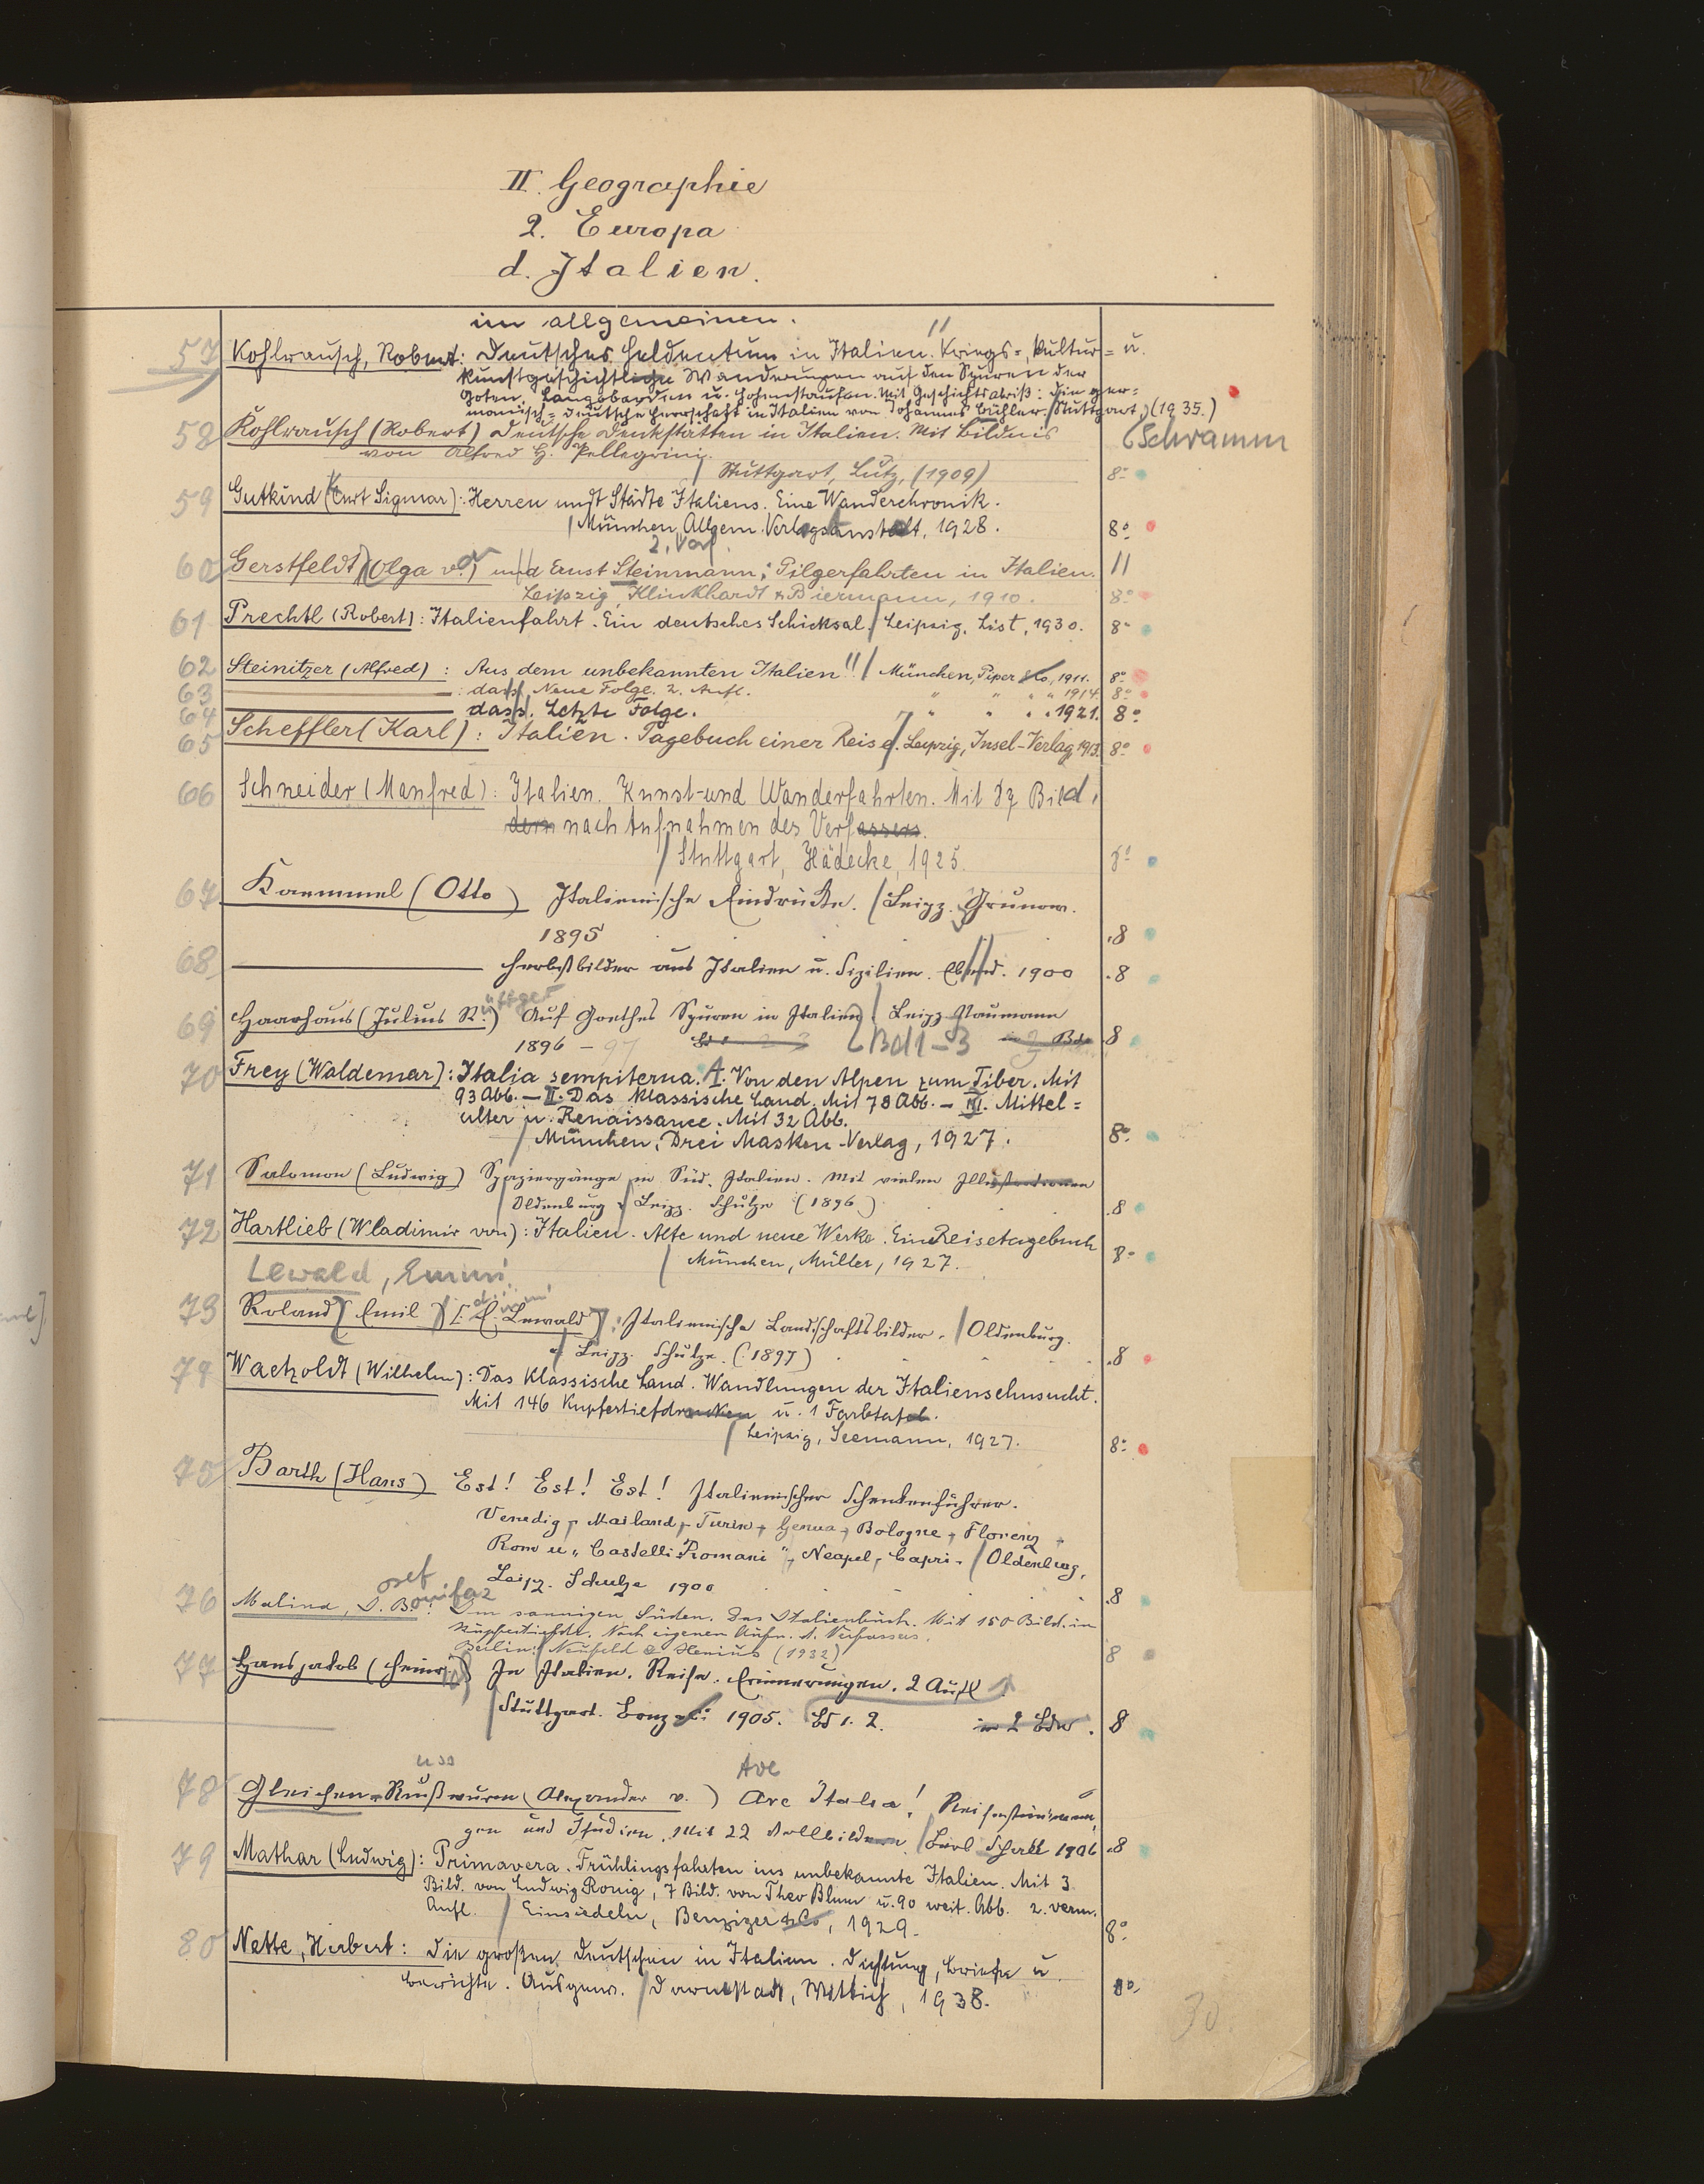 II. Geographie
2. Europa
d. Italien.
im allgemeinen.
57 Kohlrausch, Robert: Deutsches Heldentum in Italien. Kriegs=, Kultur= u.
kunstgeschichtliche Wanderungen auf den Spuren der
Goten, Langobarden u. Hohenstaufen. Mit Geschichtsabriß: Die ger=
manisch=deutsche Herrschaft in Italien von Johannes Bühler. Stuttgart, (1935.)
Schramm
58 Kohlrausch (Robert) Deutsche Denkstätten in Italien. Mit Bildnis
von Alfred H. Pellegrini.
Stuttgart, Lutz, (1909) 8°
59 Gutkind (Curt Sigmar): Herren und Städte Italiens. Eine Wanderchronik.
München, Allgem. Verlagsanstalt, 1928. 8°
60 Gerstfeldt (Olga v.) und Ernst Steinmann: Pilgerfahrten in Italien.
2. Verf.
Leipzig, Klinkhardt & Biermann, 1910. 8°
61 Prechtl (Robert): Italienfahrt. Ein deutsches Schicksal. Leipzig, List, 1930. 8°
62 Steinitzer (Alfred): Aus dem unbekannten Italien. München, Piper & Co, 1911. 8°
63 : dass. Neue Folge. 2. Aufl. " " " " 1914. 8°
64 dass. Letzte Folge. " " " " 1921. 8°
65 Scheffler (Karl): Italien. Tagebuch einer Reise. Leipzig, Insel-Verlag, 1913. 8°
66 Schneider (Manfred): Italien. Kunst- und Wanderfahrten. Mit 87 Bild,
dern nach Aufnahmen des Verfassers.
Stuttgart, Hädecke, 1925. 8°
67 Kaemmel (Otto) Italienische Eindrücke. Leipz. Grunow.
1895 8
68 Herbstbilder aus Italien u. Sizilien. Ebend. 1900 8
69 Haarhaus (Julius R.) Auf Goethes Spuren in Italien. Leipz. Naumann
1896 – 97 Bd 1–3 8
70 Frey (Waldemar): Italia sempiterna. I. Von den Alpen zum Tiber. Mit
93 Abb. – II. Das klassische Land. Mit 78 Abb. – III. Mittel=
alter u. Renaissance. Mit 32 Abb.
München, Drei Masken Verlag, 1927. 8°
71 Salomon (Ludwig) Spaziergänge in Süd-Italien. Mit vielen Illustrationen
Oldenburg & Leipz. Schulze (1896) 8
72 Hartlieb (Wladimir von): Italien. Alte und neue Werke. Ein Reisetagebuch
München, Müller, 1927. 8°
Lewald, Emmi
73 Roland (Emil) [: E. Lewald]: Italienische Landschaftsbilder. Oldenburg.
& Leipz. Schulze. (1897) 8
74 Waetzoldt (Wilhelm): Das klassische Land. Wandlungen der Italiensehnsucht.
Mit 146 Kupfertiefdrucken u. 1 Farbtafel.
Leipzig, Seemann, 1927. 8°
75 Barth (Hans) Est! Est! Est! Italienischer Schenkenführer.
Venedig, Mailand, Turin, Genua, Bologne, Florenz,
Rom u. "Castelli Romani", Neapel, Capri. Oldenburg,
Leipz. Schulze 1900 8
76 Malina, J. B.: Im sonnigen Süden. Das Italienbuch. Mit 150 Bild. in
Kupfertiefdr. Nach eigenen Aufn. d. Verfassers.
Berlin: Neufeld & Henius (1932) 8
77 Hansjakob (Heinrich) In Italien. Reise-Erinnerungen. 2 Aufl
Stuttgart. Bonz & C: 1905. Bd 1. 2. in 2 Bdn. 8
78 Gleichen-Rußwurm (Alexander v.) Ave Italia! Reisestimmun,
gen und Studien. Mit 22 Vollbildern. Berl Schall 1906 8
79 Mathar (Ludwig): Primavera. Frühlingsfahrten ins unbekannte Italien. Mit 3
Bild. von Ludwig Ronig, 7 Bild. von Theo Blum u. 90 weit. Abb. 2. verm.
Aufl. Einsiedeln, Benziger & Co, 1929. 8°
80 Nette, Herbert: Die großen Deutschen in Italien. Dichtung, Briefe u.
Berichte. Ausgew. Darmstadt, Wittich, 1938. 8°
30